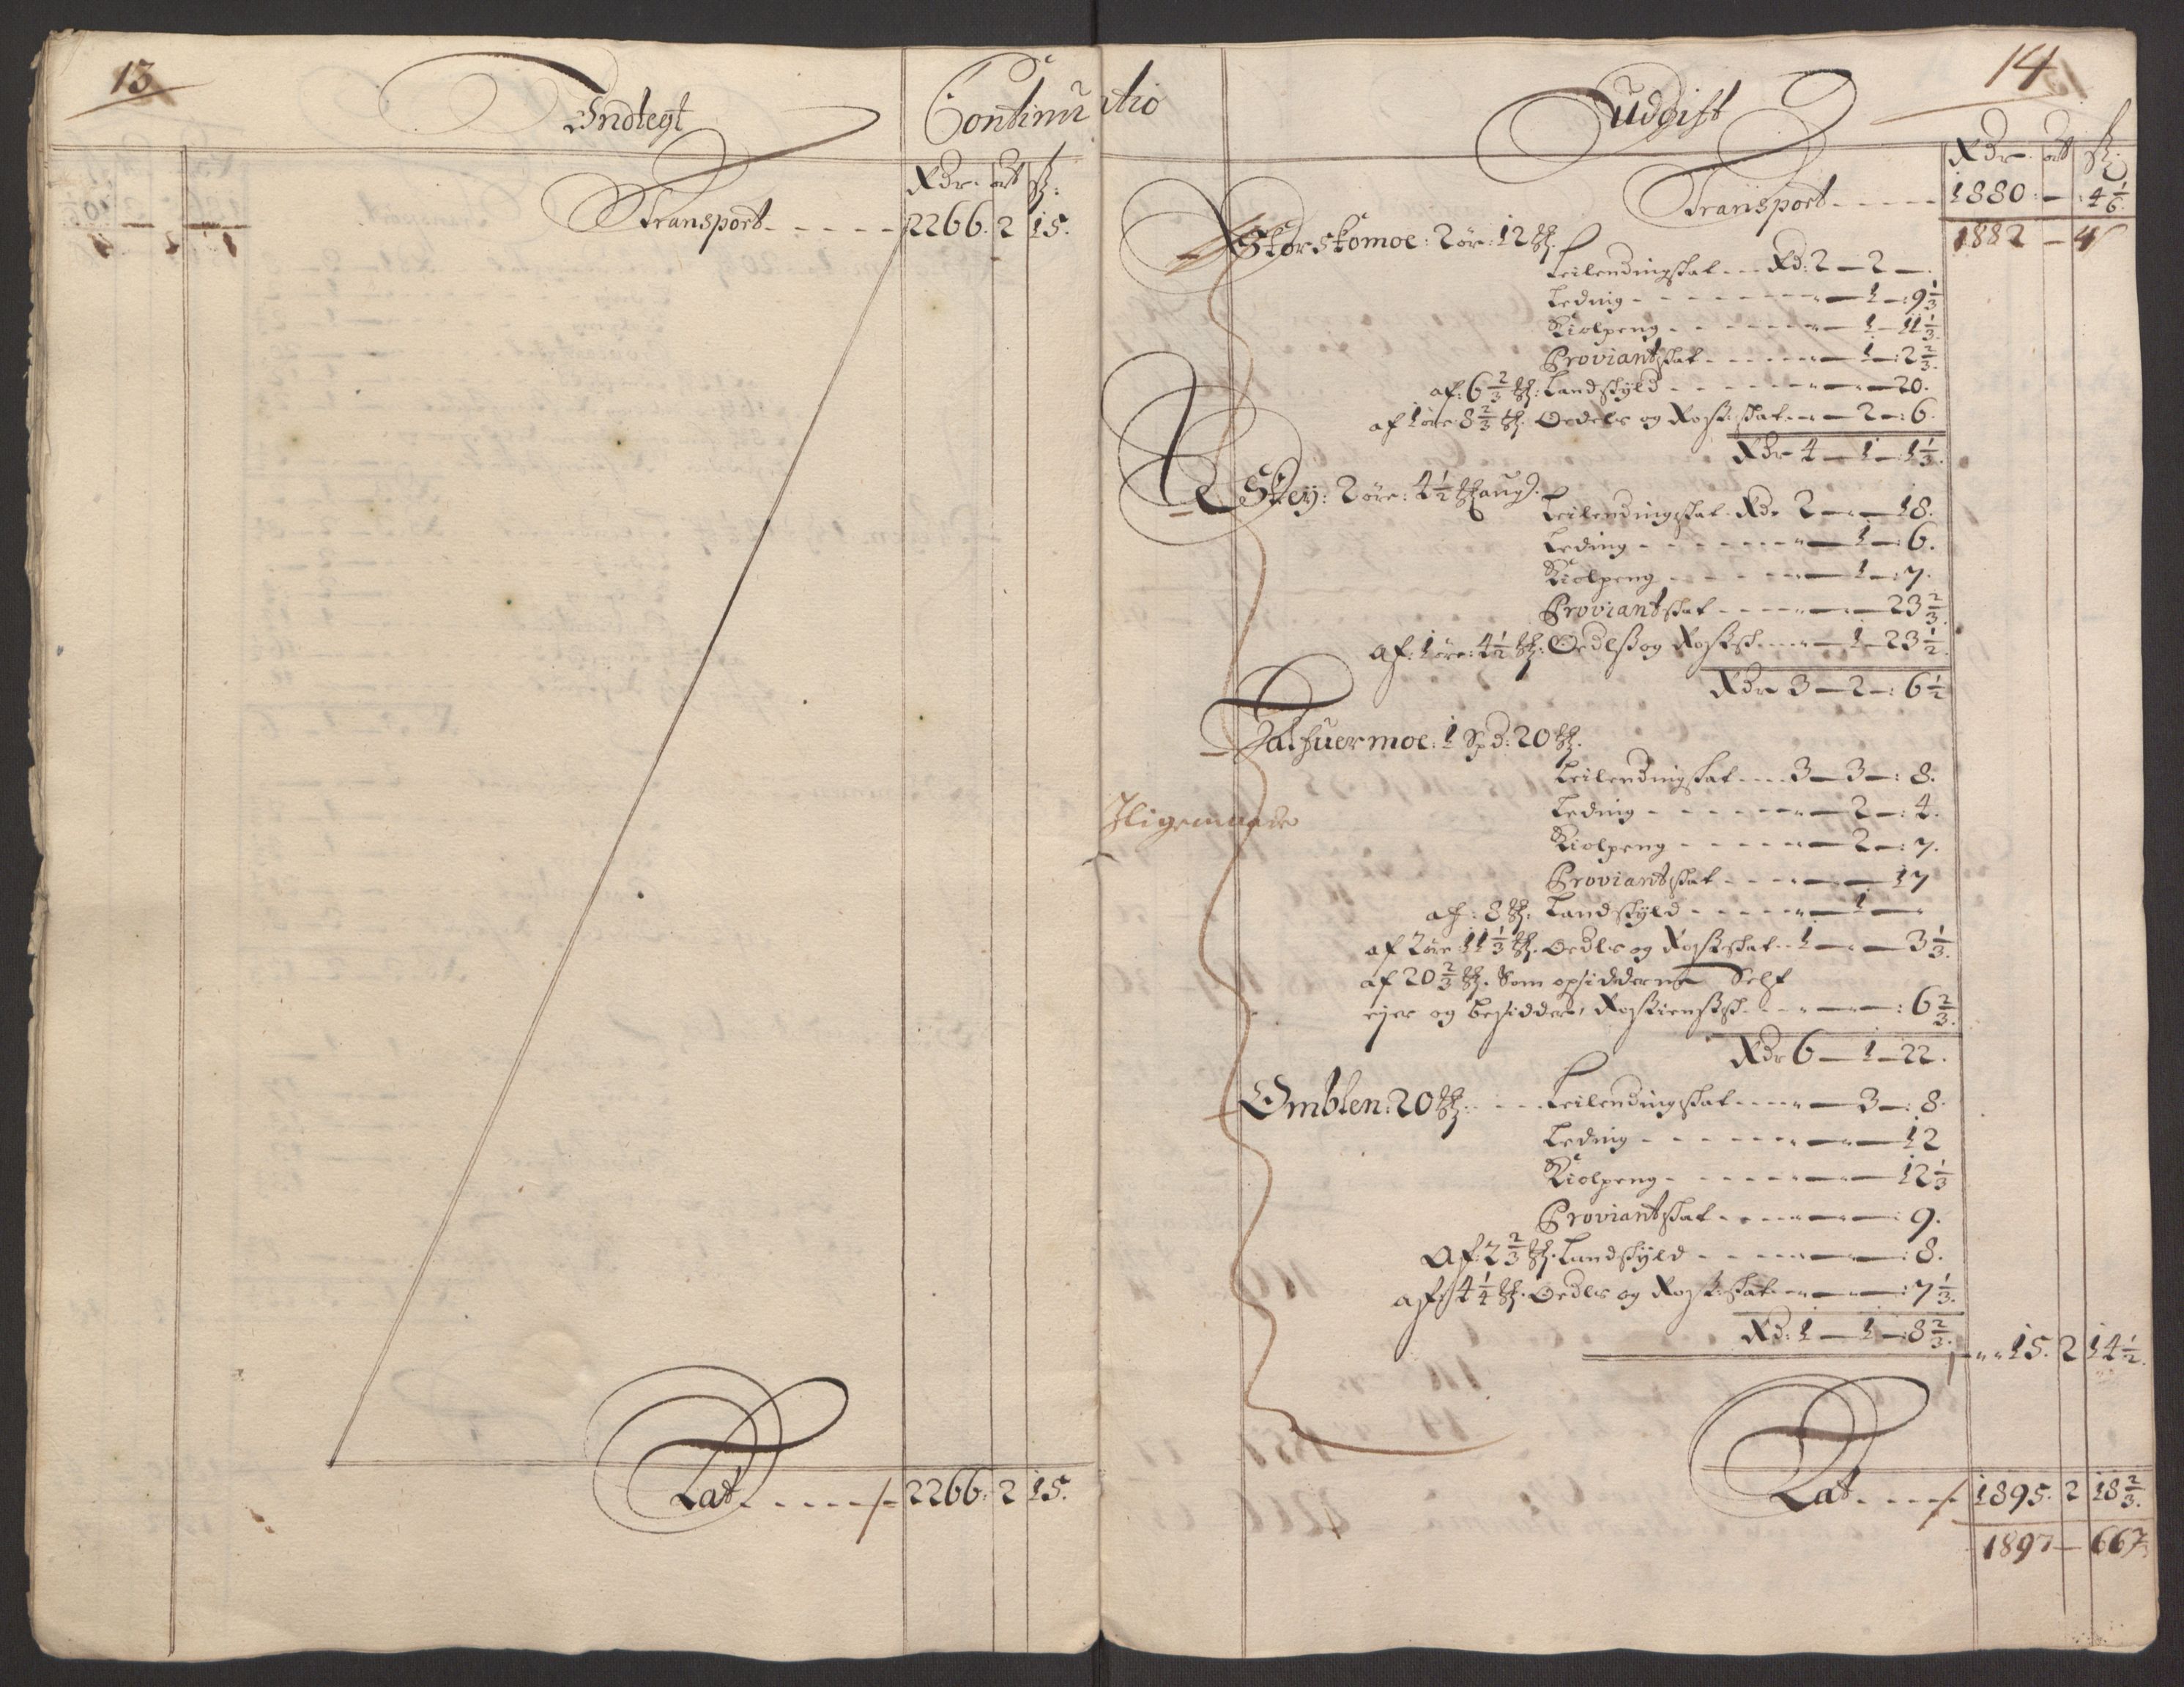 13
Indtegt Continuatio
Rdr. ort ß:
Transport - - - - - 2266. 2 15.
Lat. - - - - - 2266. 2 15.
14
Uudgift
Rdr. ort ß:
Transport - - - - - 1880: — : 4 1/6.
1882 — 4
Storskomoe: 2 ör: 12 ℔.
Leilendingskat - - - Rd: 2 — 2 —.
Leding - - - - - - - " — 1 —: 9 1/3
Kiolpeng - - - - - - " — 1 — 11 1/3.
Proviantskat - - - - - " — 1 —: 2 2/3.
af: 6 2/3 ℔: Landskÿld - - - - - - " — " — 20.
af 1 öre: 8 2/3 ℔. Oedels og Roskt: skat - " — 2 —: 6.
Rdr 4 — 1 —: 1 1/3.
Skeÿ: 2 öre: 4 1/2 ℔ aug.
Leilendingskat. Rdr 2 — " — 18.
Leding - - - - - - - " — 1 —: 6.
Kiolpeng - - - - - " — 1 —: 7.
Proviantskat - - - - " — " — 23 2/3.
af: 1 öre: 4 1/2 ℔: Oedelß og Roskt: sk - - - " — 1 — 23 1/2.
Rdr 3 — 2 —: 6 1/2
Jathuermoe: 1 Spd: 20 ℔.
Leilendingskat - - - 3 — 3 —: 8.
Leding - - - - - - - " — 2 —: 4.
Iligemaade
Kiolpeng - - - - - " — 2 —: 7.
Proviantskat - - - " — " — 17
af: 8 ℔. Landskÿld - - - - - " — 1 — "
af 2 öre 11 1/3 ℔. Oedls og Roskt: skat - 1 — " — 3 1/3.
af 20 2/3 ℔. Som opsidderne Self
eÿer og besidder, Rostienstsk - - - " — " —: 6 2/3.
Rdr 6 — 1 — 22.
Omblen: 20 ℔: - - - Leilendingskat - - - - " — 3 —: 8.
Leding - - - - - - - " — " — 12
Kiolpeng - - - - - - " — " — 12 1/3
Proviantskat - - - - " — " —: 9.
Af: 2 2/3 ℔. Landskÿld - - - - " — " —: 8.
af: 4 1/4 ℔. Oedls og Roskt: skat - " — " —: 7 1/3.
Rd: 1 — 1 —: 8 2/3.
" " 15. 2 14 1/2.
Lat. - - - - 1895. 2 18 2/3.
1897 — 6 2/3